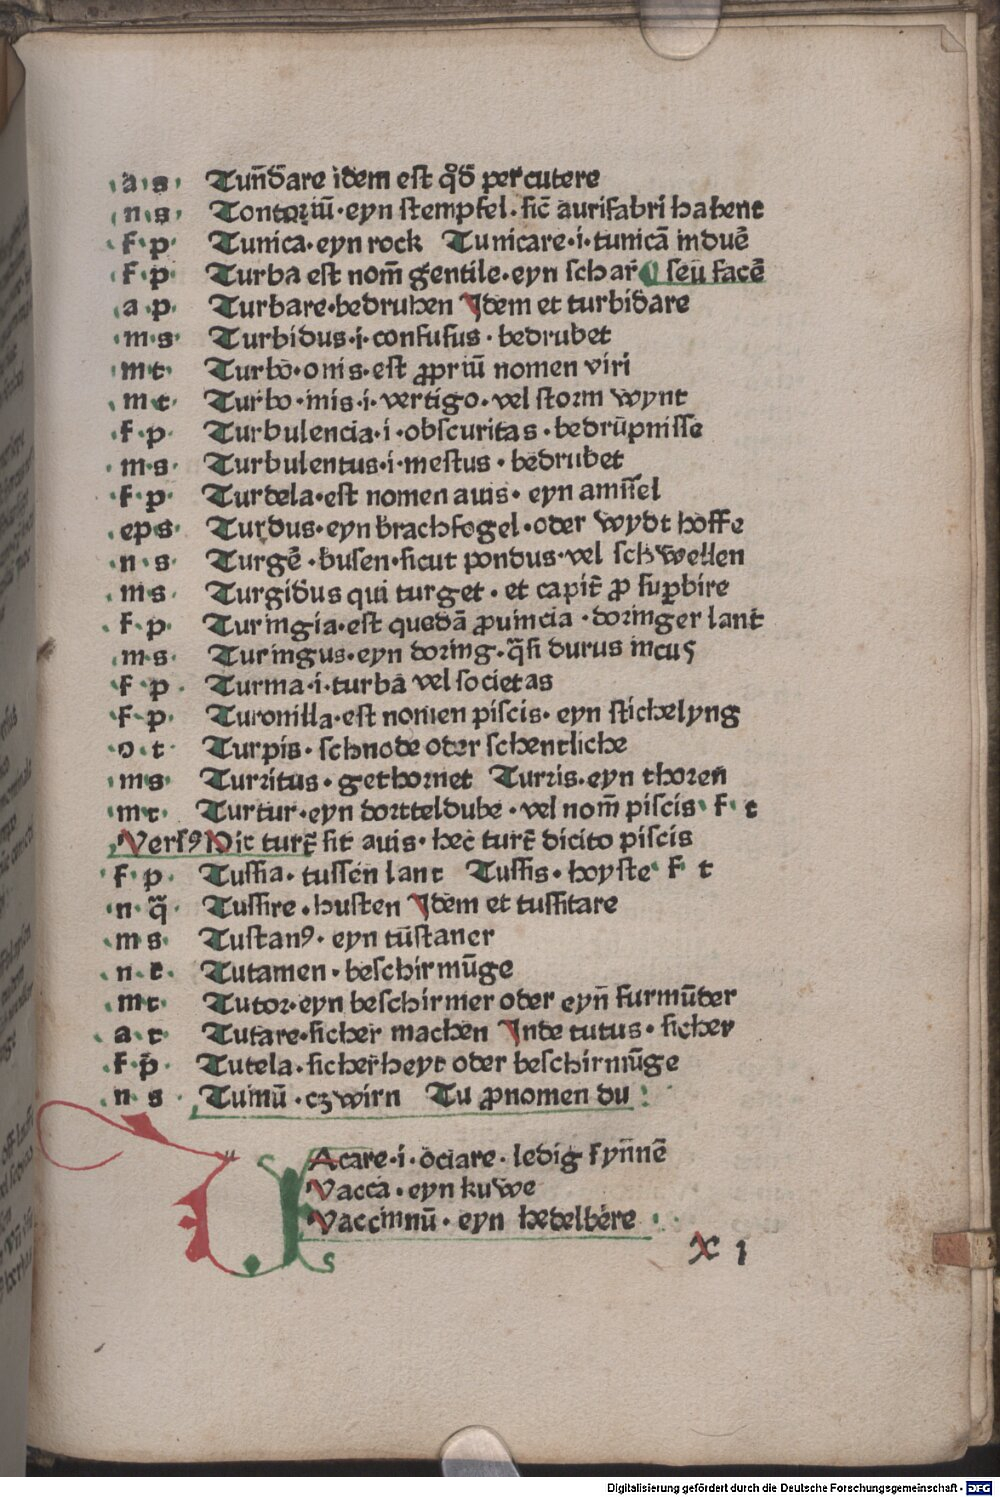 a s Tun̄dare idem est qd̓ percutere
n s Tontoriū · eyn stempfel · sic̄ aurifabri habent
f p Tunica · eyn rock Tunicare · i · tunicā induē
f p Turba est nom̄ gentile · eyn schar seu facē
a p Turbare · bedruben Idem et turbidare
m s Turbidus · i · confusus · bedrubet
m t Turbo · onis · est ꝓpriū nomen viri
m t Turbo · inis · i · vertigo · vel storm wynt
f p Turbulencia · i · obscuritas · bedrūpnisse
m s Turbulentus · i · mestus · bedrubet
f p Turdela · est nomen auis · eyn amssel
ep s Turdus · eyn brachfogel · oder wydt hoffe
n s Turgē · busen · sicut pondus · vel schwellen
m s Turgidus qui turget · et capit̄ ꝓ suꝑbire
f p Turingia · est quedā ꝓuincia · doringer lant
m s Turingus · eyn doring · q̄si durus incus
f p Turma · i · turba vel societas
f p Turonilla · est nomen piscis · eyn stichelyng
o t Turpis · schnode oder schentliche
m s Turritus · gethornet Turris · eyn thoren
m t Turtur · eyn dortteldube · vel nom̄ piscis · f · t
Versꝰ Hic turt̄ sit auis · hec turt̄ dicito piscis
f p Tussia · tussen lant Tussis · hoyste · f t
n q̄ Tussire · husten Idem et tussitare
m s Tustanꝰ · eyn tūstaner
n t Tutamen · beschirmūge
m t Tutor · eyn beschirmer oder eyn̄ furmūder
a t Tutare · sicher machen Inde tutus · sicher
f p Tutela · sicherheyt oder beschirmūge
n s Tuinū · czwirn Tu ꝓnomen du
VAcare · i · ociare · ledig syn̄nē
Vacca · eyn kuwe
Vaccinnū · eyn hedelbere
x 1
Digitalisierung gefördert durch die Deutsche Forschungsgemeinschaft - DFG